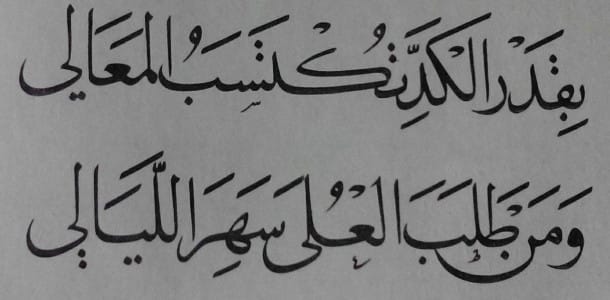 بِقَدْرِ الْكَدِّ تُكْتَسَبُ الْمَعَالِي
وَمَنْ طَلَبَ الْعُلَى سَهِرَ اللَّيَالِي